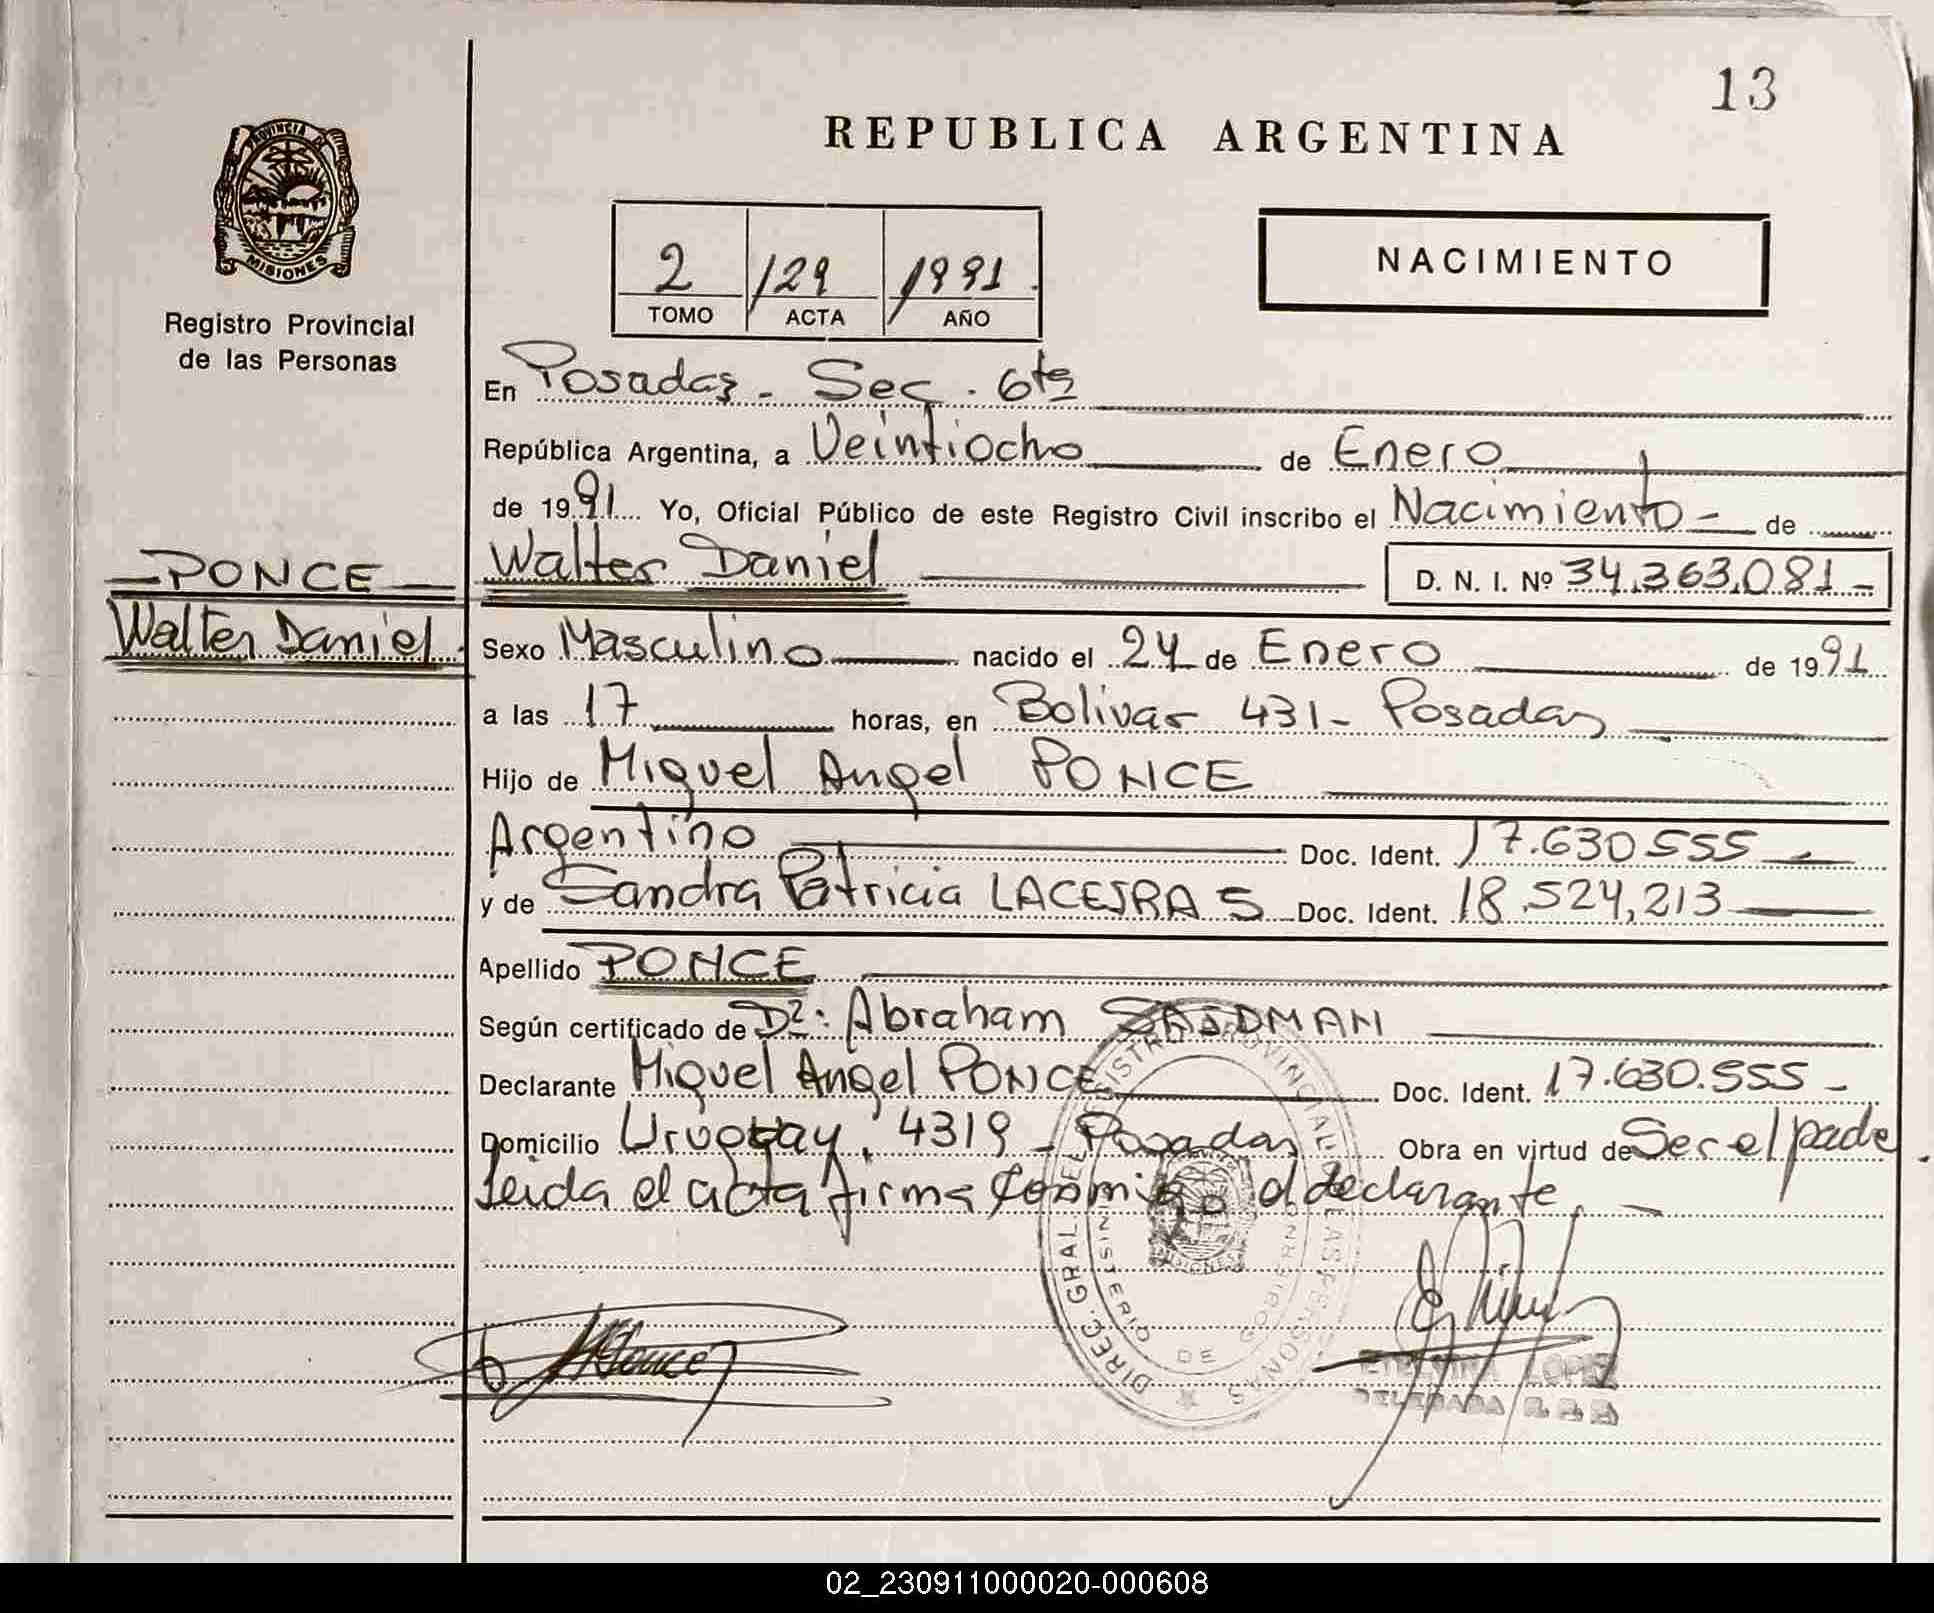 13
REPUBLICA ARGENTINA
PROVINCIA DE
MISIONES
Registro Provincial
de las Personas
2 129 1991
TOMO ACTA AÑO
NACIMIENTO
En Posadas - Sec. 6ta
República Argentina, a Veintiocho de Enero
de 1991 Yo, Oficial Público de este Registro Civil inscribo el Nacimiento - de
Walter Daniel D. N. I. Nº 34.363.081 -
- PONCE -
Walter Daniel.
Sexo Masculino nacido el 24 de Enero de 1991
a las 17 horas, en Bolivar 431 - Posadas
Hijo de Miguel Angel PONCE
Argentino Doc. Ident. 17.630555
y de Sandra Patricia Doc. Ident. 18.524,213
Apellido PONCE
Según certificado de Dr: Abraham
Declarante Miguel Angel PONCE Doc. Ident. 17.630.555 -
Domicilio Uruguay, 4319 - Posadas Obra en virtud de Ser el padre
leida el acta firma conmigo el declarante
DIREC. GRAL. DEL REGISTRO PROVINCIAL DE LAS PERSONAS
MINISTERIO DE GOBIERNO
LOPEZ
DELEGADA R. P. P.
02_230911000020-000608